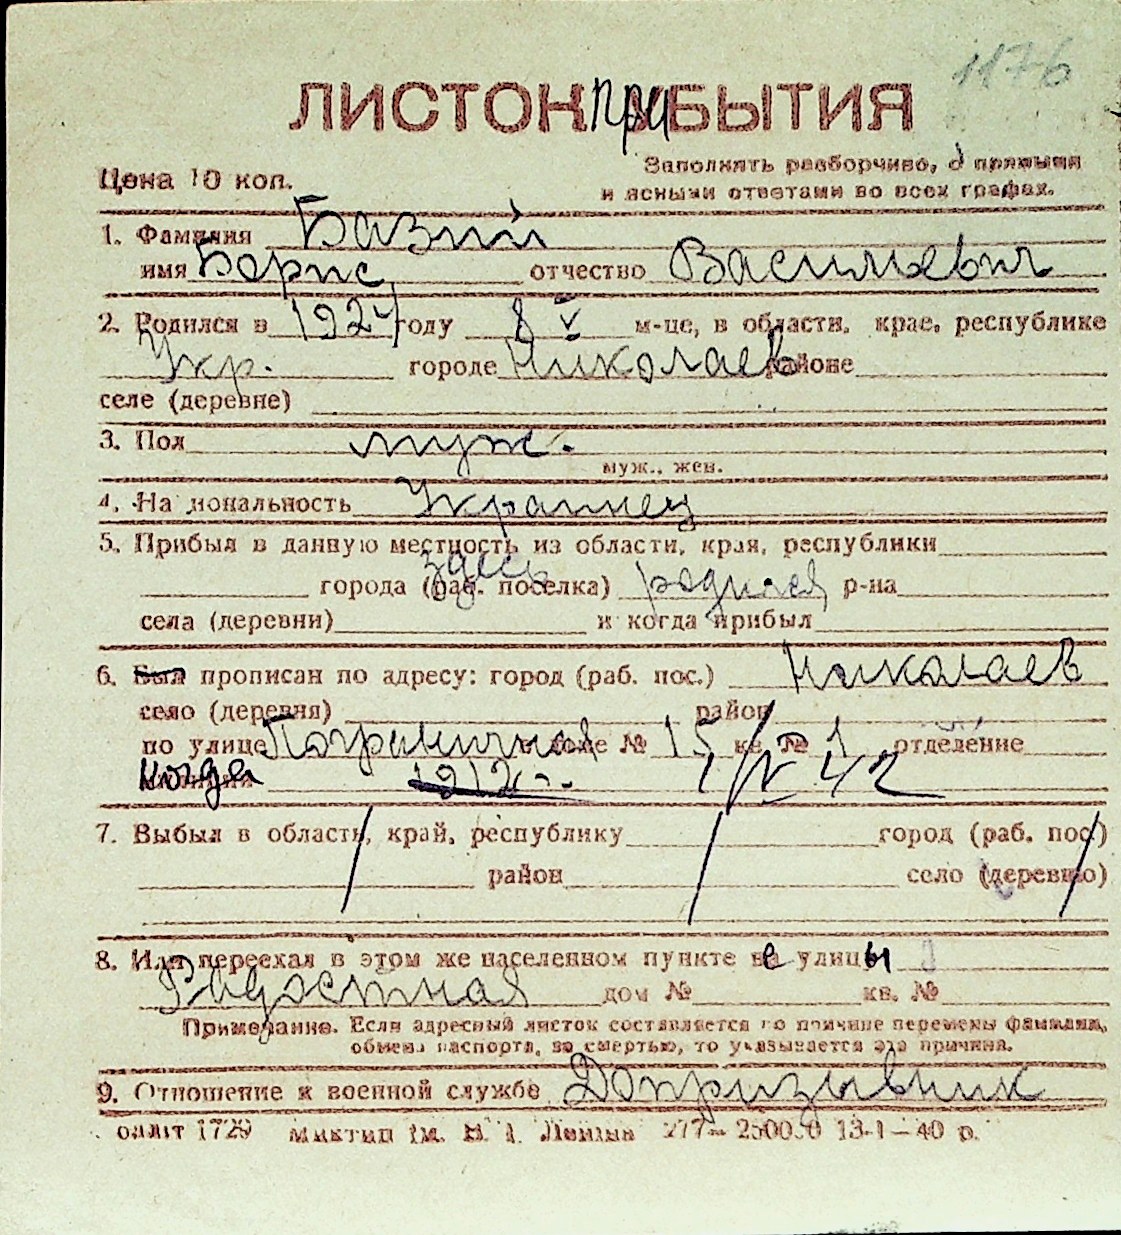 1176
ЛИСТОК ПриБЫТИЯ
Цена 10 коп.
Заполнять разборчиво, с прямыми
и ясными ответами во всех графах.
1. Фамилия Базий
имя Борис отчество Васильевич
2. Родился в 1924 году 8 V м-це, в области, крае, республике
Укр. городе Николаев районе
селе (деревне)
3. Пол муж.
муж., жен.
4. Национальность Украинец
5. Прибыл в данную местность из области, края, республики
здесь
города (раб. поселка) родился р-на
села (деревни) и когда прибыл
6. Был прописан по адресу: город (раб. пос.) Николаев
село (деревня) район
по улице Пограничная в доме № 15 кв. № 1 отделение
Когда 1/IV 42
7. Выбыл в область, край, республику город (раб. пос.)
район село (деревню)
8. Или переехал в этом же населенном пункте с улицы
дом № кв. №
Примечание. Если адресный листок составляется по причине перемены фамилии,
обмена паспорта, за смертью, то указывается эта причина.
9. Отношение к военной службе Допризывник
обліт 1729 Миктип ім. В. І. Леніна 277— 250000 13-1—40 р.